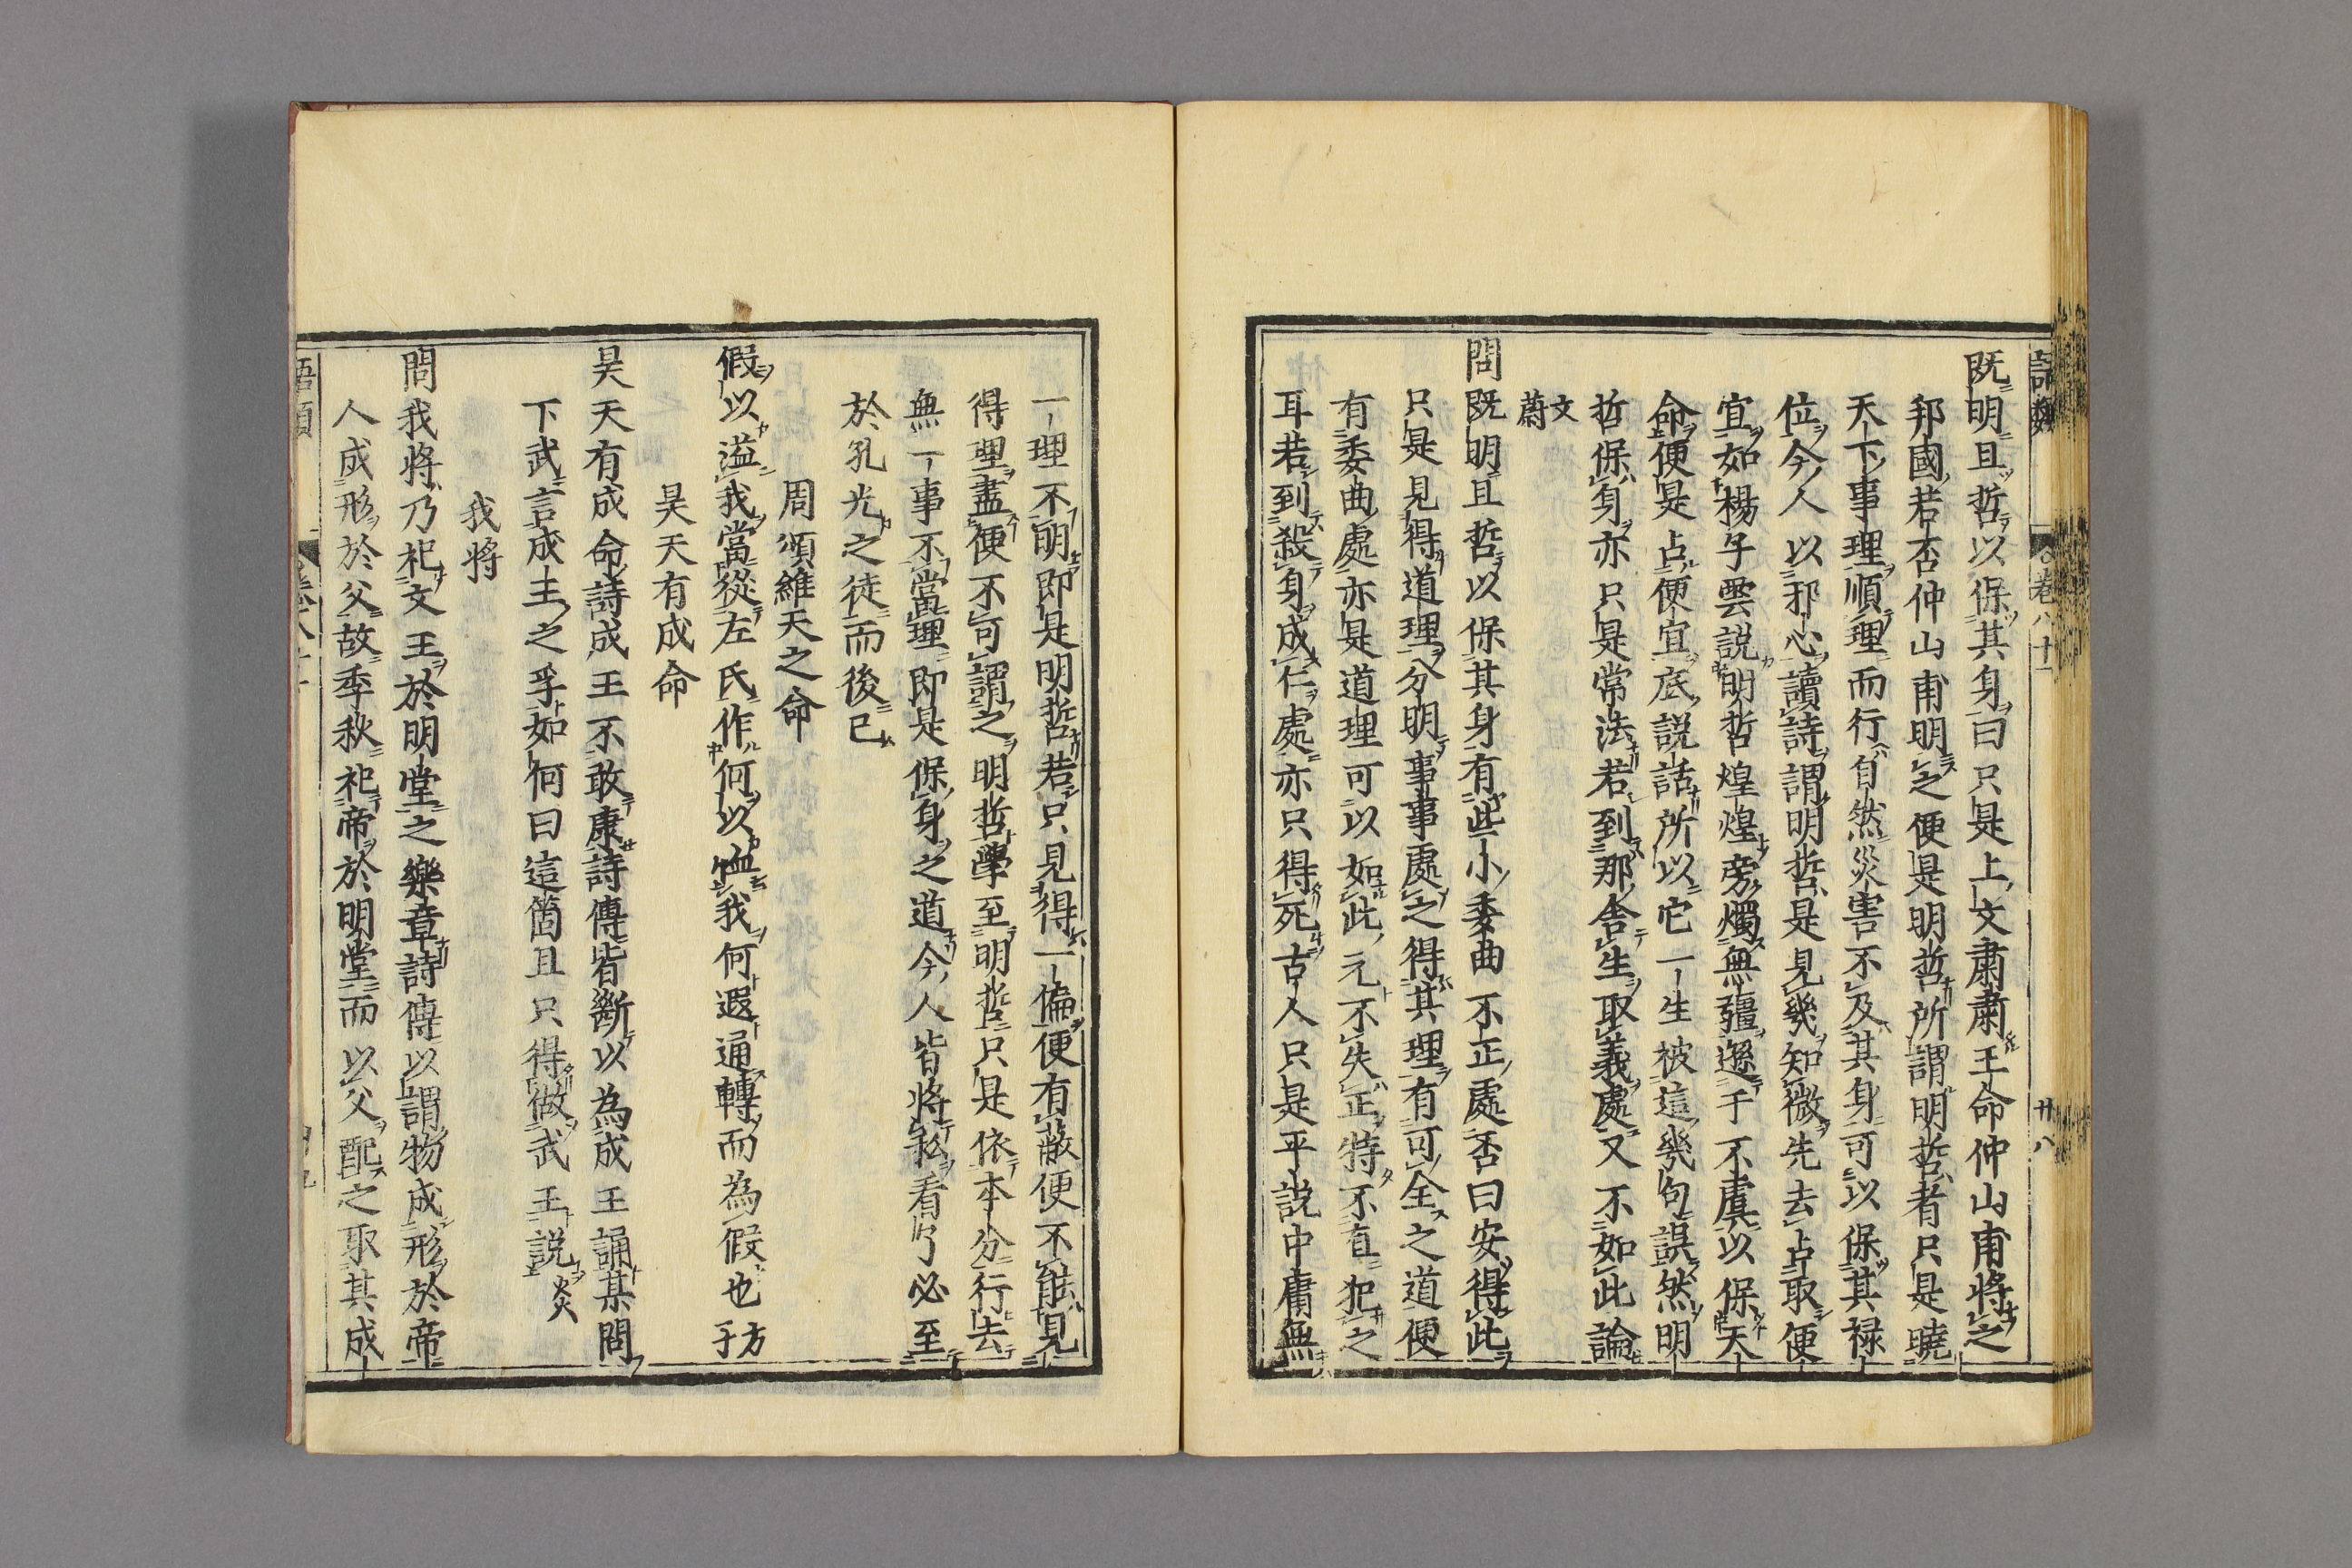 語類 卷八十一 廿八
既明且哲以保其身曰只是上文肅肅王命仲山甫將之
邦國若否仲山甫明之便是明哲所謂明哲者只是曉
天下事理順理而行自然災害不及其身可以保其祿
位今人以邪心讀詩謂明哲是見幾知微先去占取便
宜如楊子雲說明哲煌煌旁燭無疆遜于不虞以保天
命便是占便宜底說話所以它一生被這幾句誤然明
哲保身亦只是常法若到那舍生取義處又不如此論
文蔚
問既明且哲以保其身有些小委曲不正處否曰安得此
只是見得道理分明事事處之得其理有可全之道便
有委曲處亦是道理可以如此元不失正特不直犯之
耳若到殺身成仁處亦只得死古人只是平說中庸無
一理不明即是明哲若只見得一偏便有蔽便不能見
得理盡便不可謂之明哲學至明哲只是依本分行去
無一事不當理即是保身之道今人皆將私看了必至
於孔光之徒而後已
周頌維天之命
假以溢我當從左氏作何以恤我何遐通轉而為假也方子
昊天有成命
昊天有成命詩成王不敢康詩傳皆斷以為成王誦某問
下武言成王之孚如何曰這箇且只得做武王說炎
我將
問我將乃祀文王於明堂之樂章詩傳以謂物成形於帝
人成形於父故季秋祀帝於明堂而以父配之取其成
語類